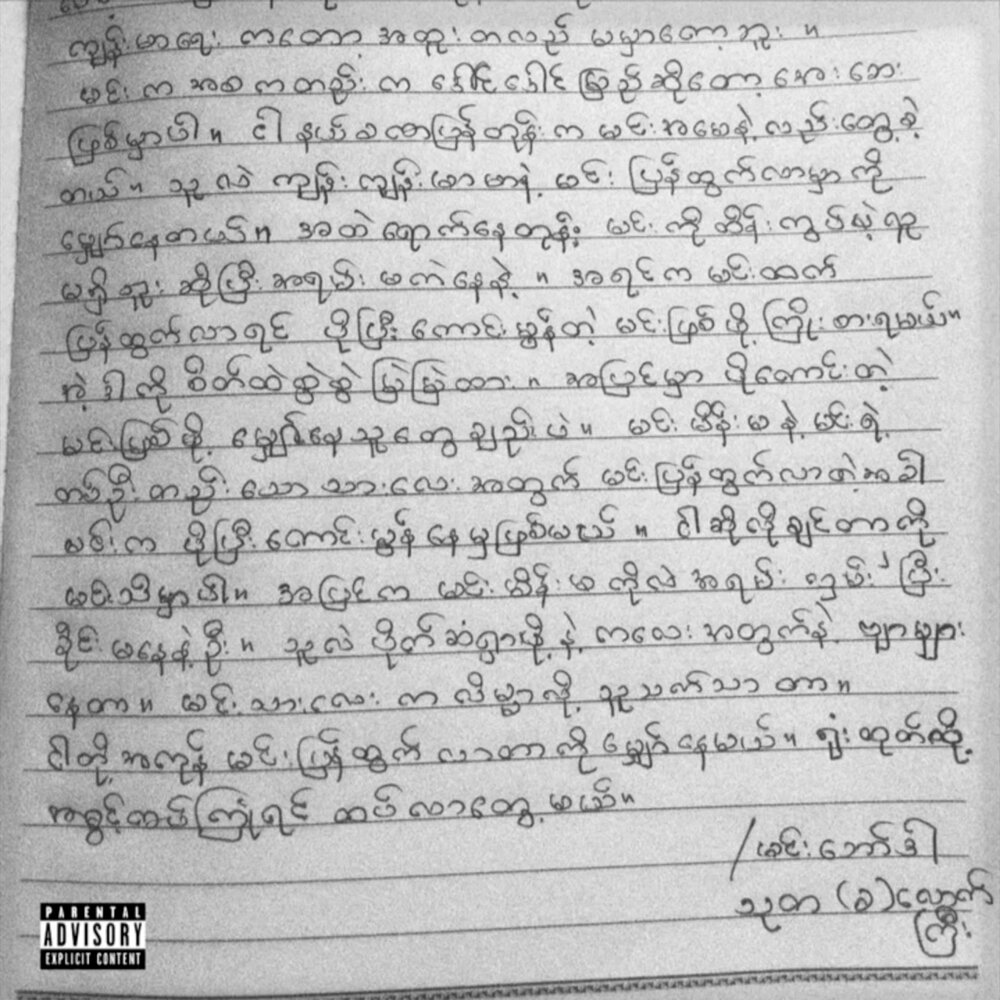 ကျန်းမာရေး ကတော့ အထူးတလည် မမှာတော့ဘူး ။
မင်းက အစကတည်းက ဒေါင်ဒေါင်မြည်ဆိုတော့ အေးဆေး
ဖြစ်မှာပါ။ ငါ နယ်ခဏပြန်တုန်းက မင်းအမေနဲ့လည်းတွေ့ခဲ့
တယ်။ သူလဲ ကျန်းကျန်းမာမာနဲ့ မင်း ပြန်ထွက်လာမှာကို
မျှော်နေတယ်။ အထဲရောက်နေတုန်း မင်းကို ထိန်းကွပ်မဲ့သူ
မရှိဘူး ဆိုပြီးအရမ်း မကဲနေနဲ့ ။ အရင်က မင်းထက်
ပြန်ထွက်လာရင် ပိုပြီးကောင်းမွန်တဲ့ မင်းဖြစ်ဖို့ ကြိုးစားရမယ်။
အဲ့ဒါကို စိတ်ထဲစွဲစွဲမြဲမြဲထား ။ အပြင်မှာ ပိုကောင်းတဲ့
မင်းဖြစ်ဖို့ မျှော်နေသူတွေချည်းပဲ ။ မင်း မိန်းမနဲ့ မင်းရဲ့
တစ်ဦးတည်းသော သားလေးအတွက် မင်းပြန်ထွက်လာတဲ့အခါ
မင်းက ပိုပြီးကောင်းမွန်နေမှဖြစ်မယ် ။ ငါဆိုလိုချင်တာကို
မင်းသိမှာပါ။ အပြင်က မင်းမိန်းမကိုလဲ အရမ်း လွမ်းပြီး
မှိုင်မနေနဲ့ဦး ။ သူလဲ ပိုက်ဆံရှာဖို့နဲ့ ကလေးအတွက်နဲ့ ဗျာများ
နေတာ ။ မင်းသားလေး က လိမ္မာလို့ သူသက်သာတာ ။
ငါတို့အကုန် မင်းပြန်ထွက် လာတာကို မျှော်နေမယ်။ ရုံးထုတ်လို့
အခွင့်အခါကြုံရင် ထပ်လာတွေ့မယ် ။
/မင်းဘော်ဒါ
သုတ (ခ) လျှောက်
ကြီး
PARENTAL
ADVISORY
EXPLICIT CONTENT